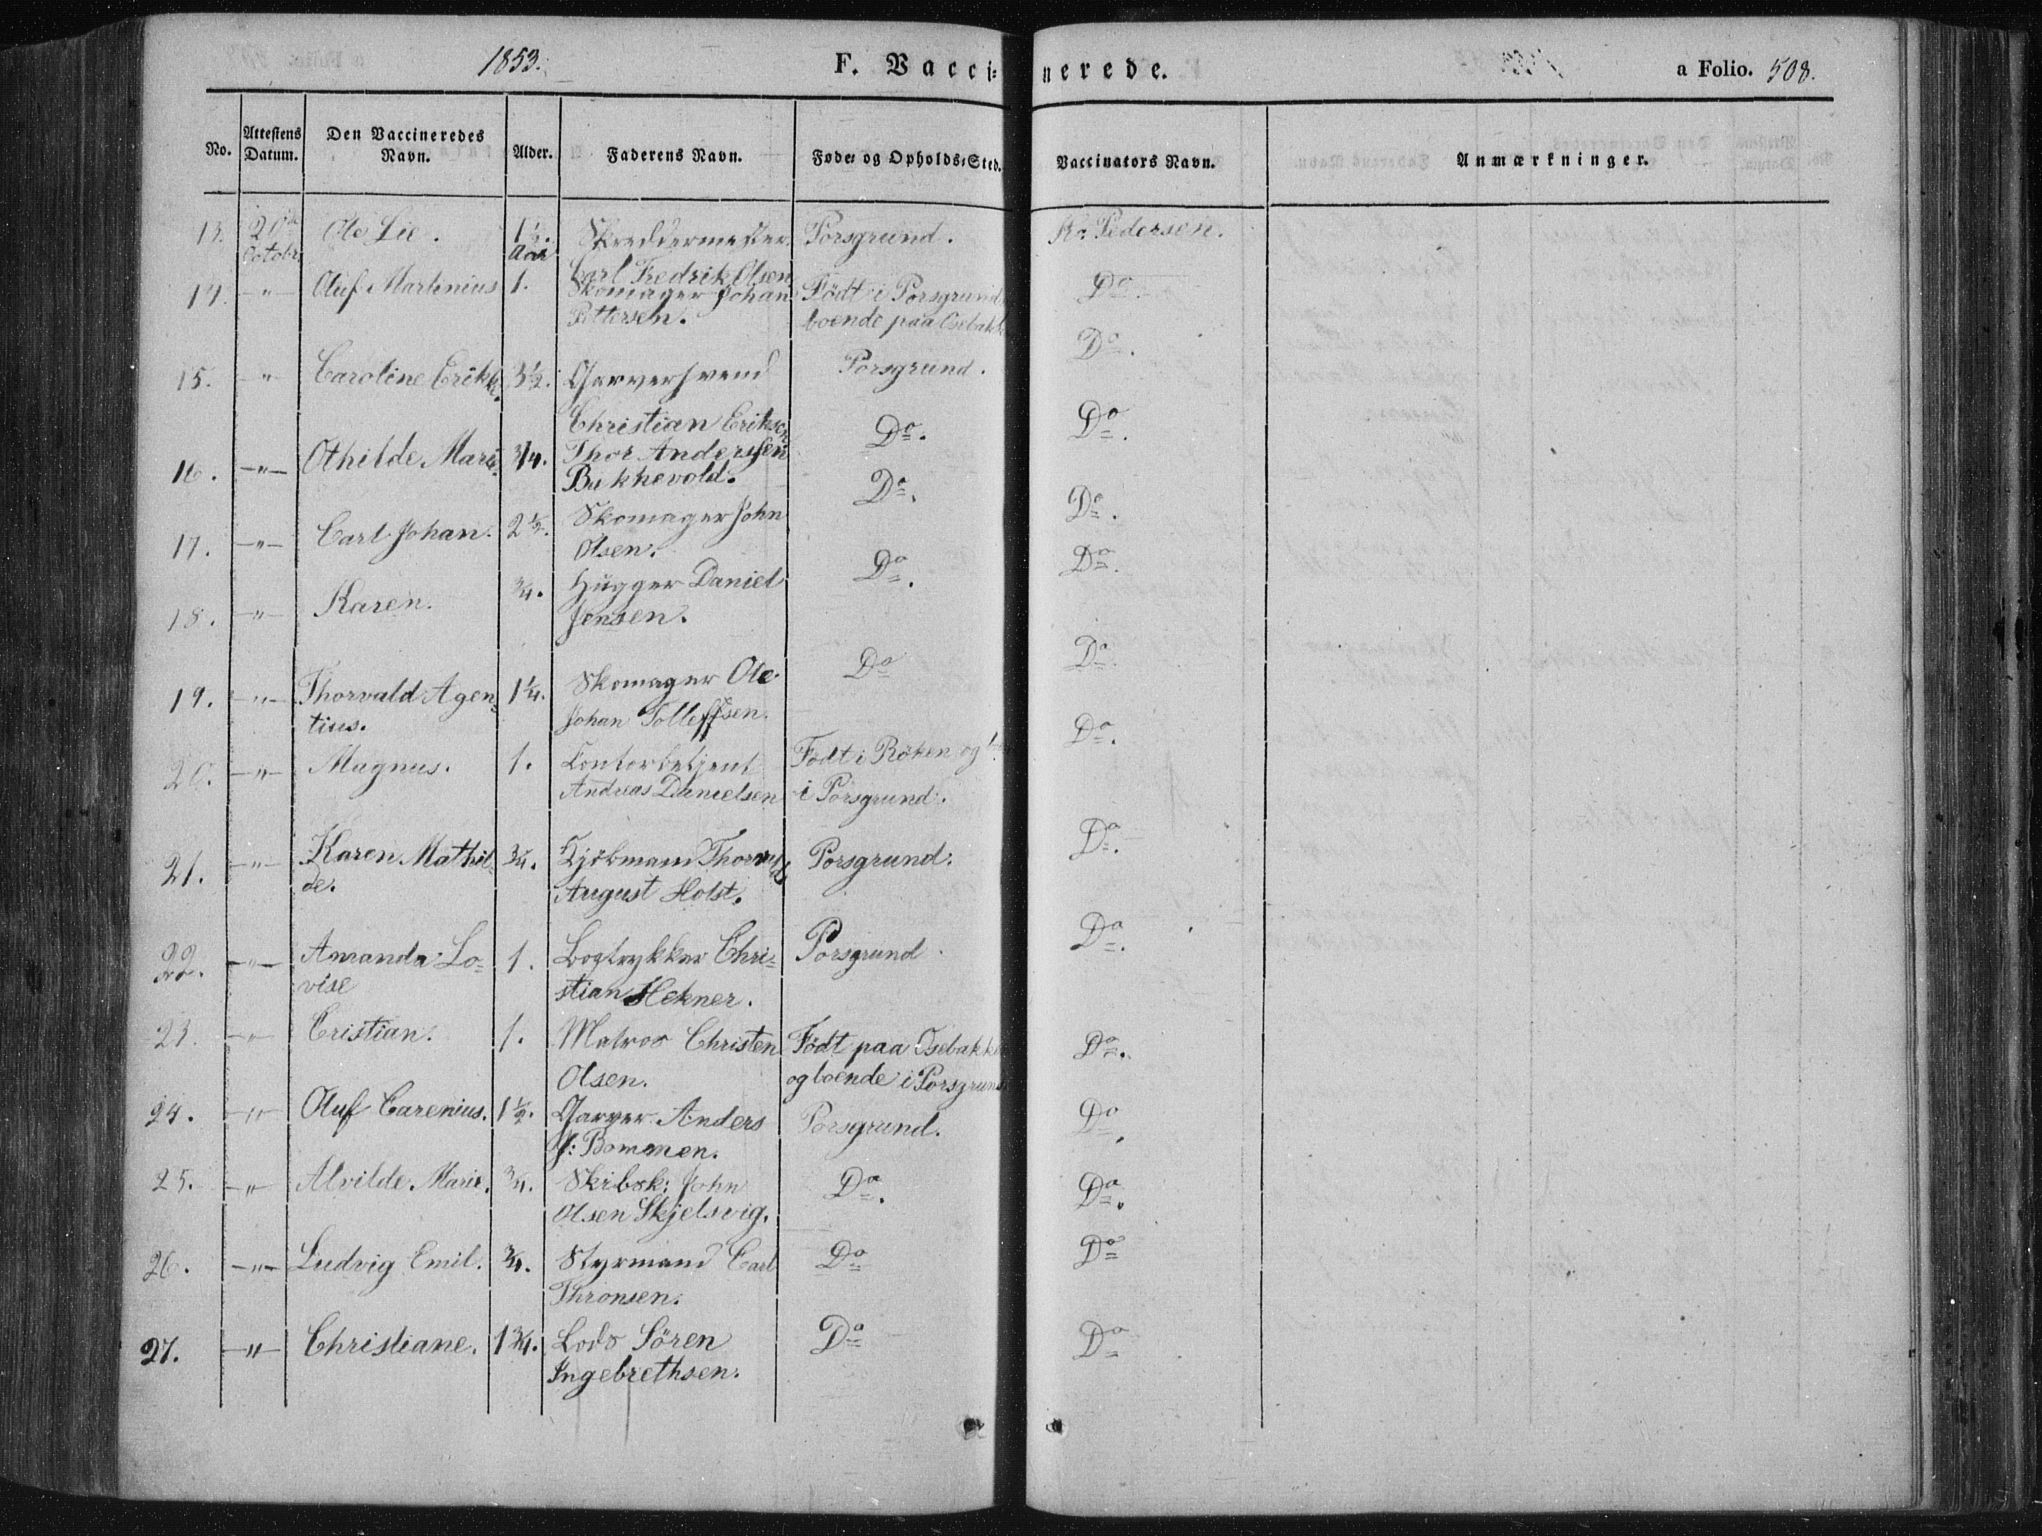 1853.
F. Vaccinerede.
a Folio. 508.
No. Attestens Datum. Den Vaccineredes Navn. Alder. Faderens Navn. Føde- og Opholds-Sted. Vaccinators Navn. Anmærkninger.
13. 20de Octobr. Ole Lie. 1½. Aar Skreddermester Porsgrund. Kr. Pedersen.
Carl Fredrik Olsen
14. -"- Oluf Martinius 1. Skomager Johan Födt i Porsgrund Do.
Pettersen. boende paa Osebakk
15. -"- Caroline Erikke. 3½. Garversvend Porsgrund. Do.
Christian Eriksen
16. -"- Othilde Marie. 3/4. Thor Anderssen Do. Do.
Bukkevold.
17. -"- Carl Johan. 2½. Skomager John Do. Do.
Olsen.
18. -"- Karen. 3/4. Hugger Daniel Do. Do.
Jensen.
19. -"- Thorvald Agen- 1¼. Skomager Ole Do Do.
tius. Johan Tolleffsen.
20. -"- Magnus. 1. Contorbetjent Födt i Röken og Do.
Andreas Danielsen i Porsgrund.
21. -"- Karen Mathil- 3/4. Kjöbmand Porsgrund. Do.
de. August Holst.
22. -"- Amanda Lo- 1. Bogtrykker Chri- Porsgrund. Do.
vise stian Hekner.
23. -"- Cristian. 1. Matros Christen Födt paa Osebakke Do.
Olsen. og boende i Porsgrund
24. -"- Oluf Carenius. 1½. Garver Anders Porsgrund. Do.
J: Bommen.
25. -"- Alvilde Marie. 3/4. Skibsk: John Do. Do.
Olsen Skjelsvig.
26. -"- Ludvig Emil. 3/4. Styrmand Carl Do Do
Thronsen.
27. -"- Christiane. 1 3/4. Lods Sören Do Do
Ingebrethsen.